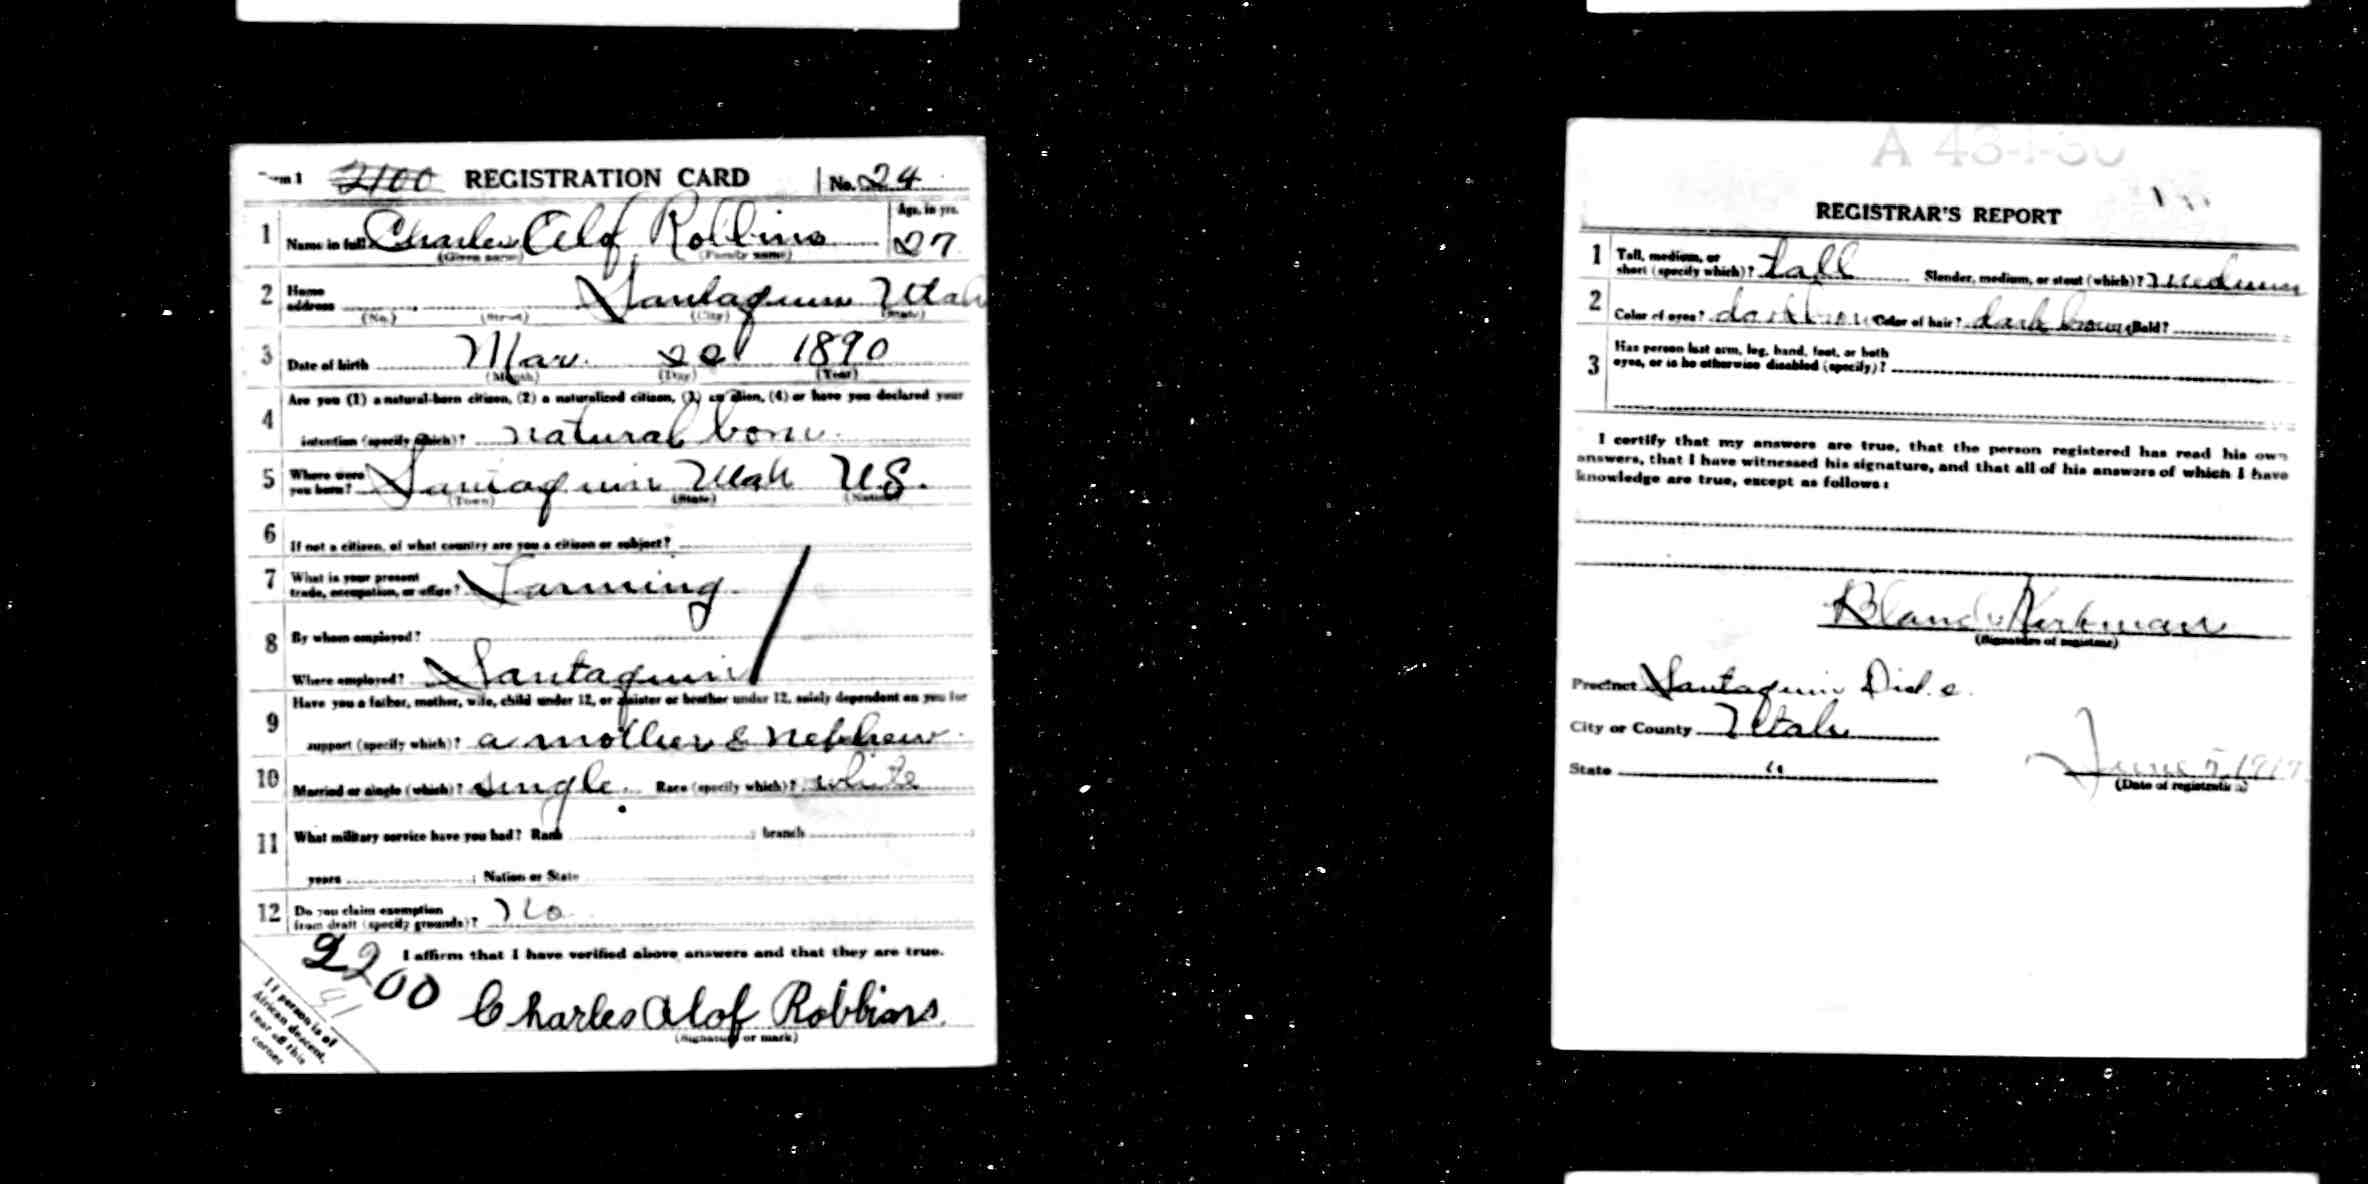 2100 REGISTRATION CARD No. 24
1 Name in full Charles Alof Robbins Age, in yrs. 27
(Given name) (Family name)
2 Home address Santaquin Utah
(No.) (Street) (City) (State)
3 Date of birth Mar. 1890
(Month) (Day) (Year)
4 Are you (1) a natural-born citizen, (2) a naturalized citizen, (3) an alien, (4) or have you declared your
intention (specify which)? natural born
5 Where were you born? Santaquin Utah U.S.
(Town) (State) (Nation)
6 If not a citizen, of what country are you a citizen or subject?
7 What is your present trade, occupation, or office? Farming
8 By whom employed?
Where employed? Santaquin
9 Have you a father, mother, wife, child under 12, or a sister or brother under 12, solely dependent on you for
support (specify which)? a mother & nephew
10 Married or single (which)? single. Race (specify which)? white
11 What military service have you had? Rank ; branch ;
years ; Nation or State
12 Do you claim exemption from draft (specify grounds)? No
I affirm that I have verified above answers and that they are true.
2200
Charles Alof Robbins.
(Signature or mark)
If person is of
African descent,
tear off this
corner
REGISTRAR'S REPORT
1 Tall, medium, or short (specify which)? tall Slender, medium, or stout (which)? medium
2 Color of eyes? Color of hair? dark brown Bald?
3 Has person lost arm, leg, hand, foot, or both
eyes, or is he otherwise disabled (specify)?
I certify that my answers are true, that the person registered has read his own
answers, that I have witnessed his signature, and that all of his answers of which I have
knowledge are true, except as follows:
Kirkman
(Signature of registrar)
Precinct Santaquin
City or County Utah
State "
June 5, 1917
(Date of registration)